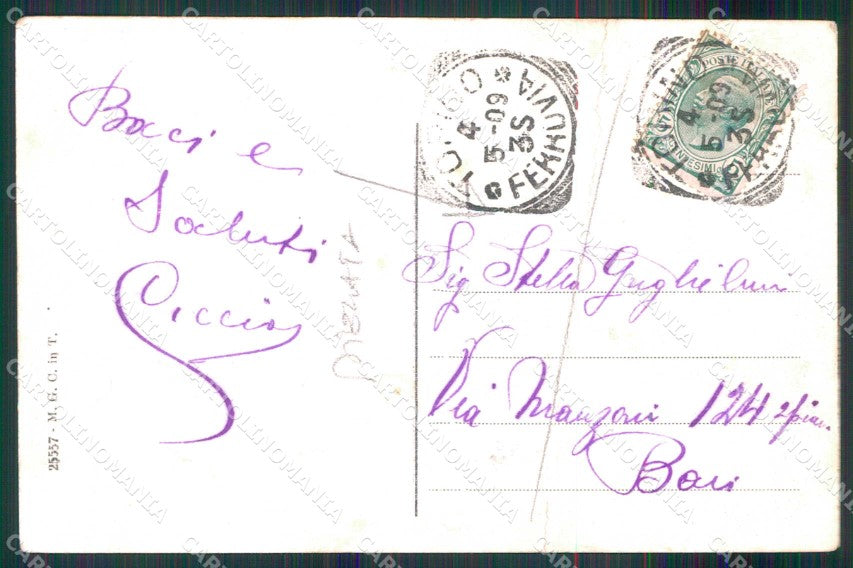 Baci e
Saluti
Ciccio
PIEGATA
25557 - M. G. C. in T.
TORINO
4
5-09
3S
FERROVIA
TORINO
4
5-09
3S
FERROVIA
POSTE ITALIANE
Sig Stella Guglielmi
Via Manzoni 124 2º piano
Bari
CARTOLINOMANIA